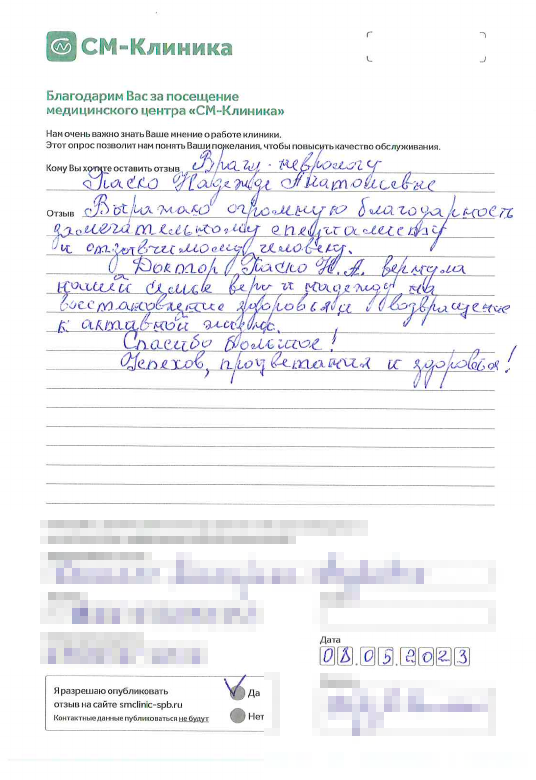 СМ-Клиника
Благодарим Вас за посещение
медицинского центра «СМ-Клиника»
Нам очень важно знать Ваше мнение о работе клиники.
Этот опрос позволит нам понять Ваши пожелания, чтобы повысить качество обслуживания.
Кому Вы хотите оставить отзыв Врачу-неврологу
Паско Надежде Анатольевне
Отзыв Выражаю огромную благодарность
замечательному специалисту
и отзывчивому человеку.
Доктор Паско Н.А. вернула
нашей семье веру и надежду на
восстановление здоровья и возвращение
к активной жизни.
Спасибо большое!
Успехов, процветания и здоровья!
Дата
08.05.2023
Я разрешаю опубликовать
отзыв на сайте smclinic-spb.ru
Контактные данные публиковаться не будут
Да
Нет